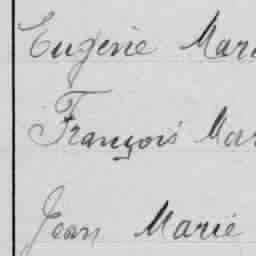 Eugénie Mari
François Mar
Jean Marie